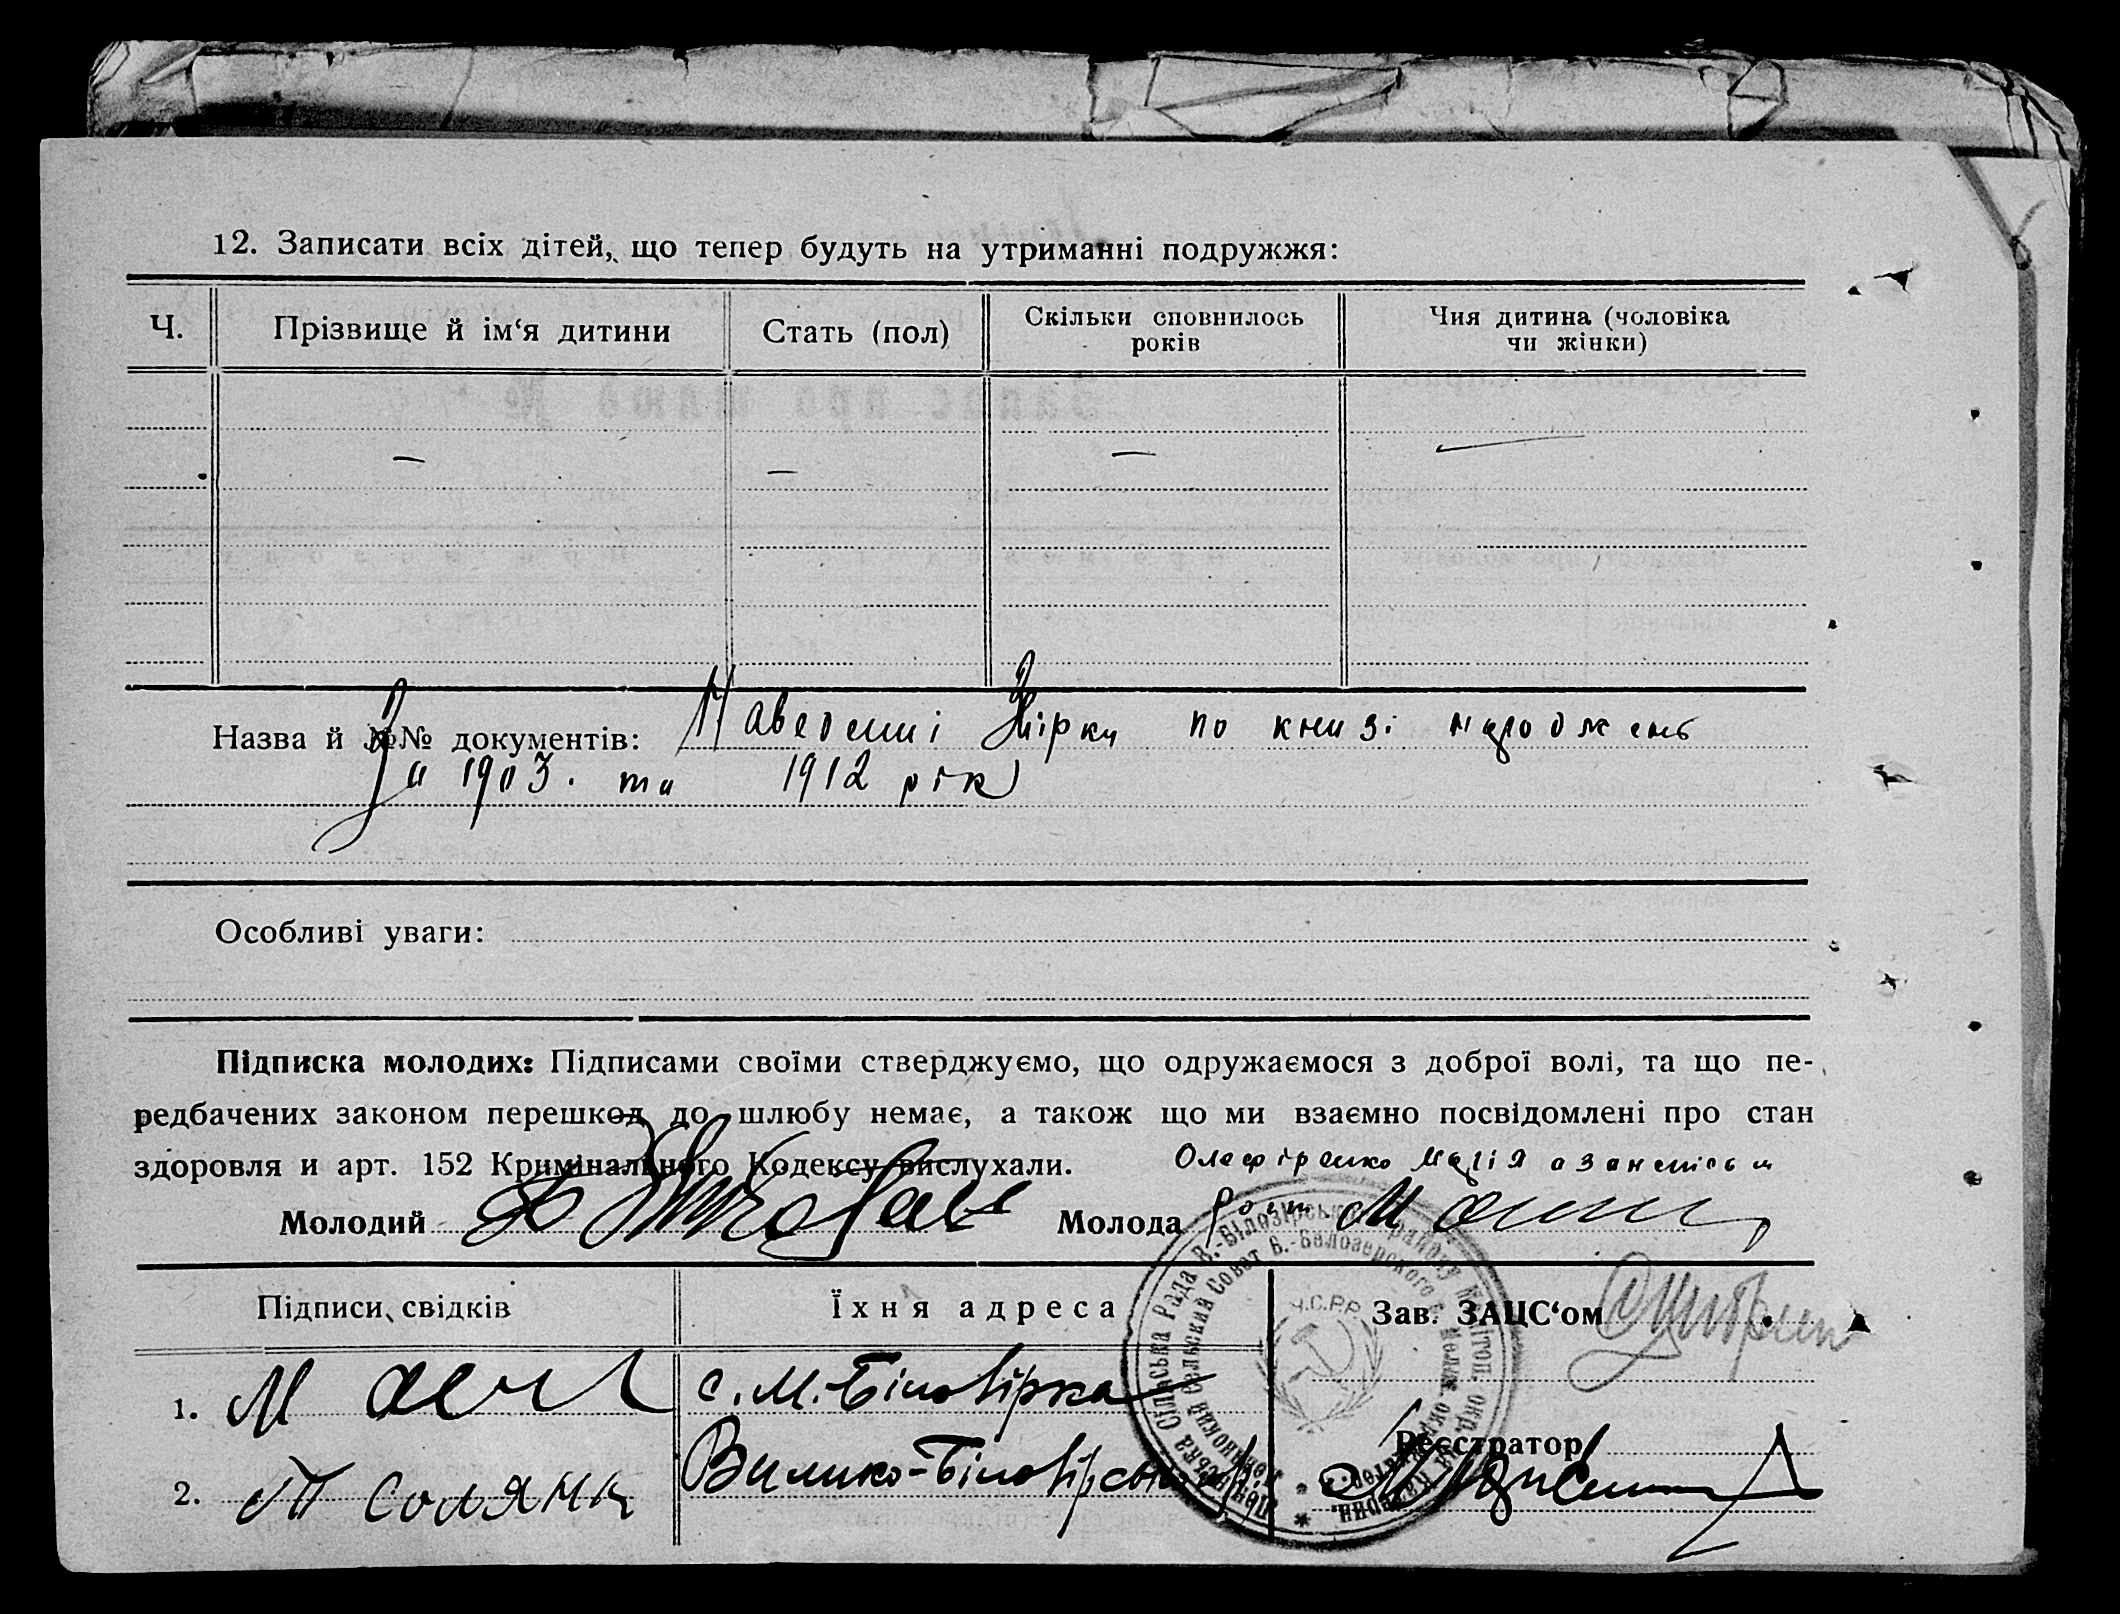 12. Записати всіх дітей, що тепер будуть на утриманні подружжя:
Ч.
Прізвище й ім‘я дитини
Стать (пол)
Скільки сповнилось
років
Чия дитина (чоловіка
чи жінки)
— — — —
Назва й №№ документів: Наведенні Зпірки по книзі народжень
За 1903. та 1912 рік
Особливі уваги:
Підписка молодих: Підписами своїми стверджуємо, що одружаємося з доброї волі, та що пе-
редбачених законом перешкод до шлюбу немає, а також що ми взаємно посвідомлені про стан
здоровля и арт. 152 Кримінального Кодексу вислухали.
Олефіренко Марія
Молодий
Молода
Підписи свідків
Їхня адреса
Зав. ЗАЦС‘ом
1. М
с. М.-Білозірка
Реєстратор
2.
Ч.С.Р.Р.